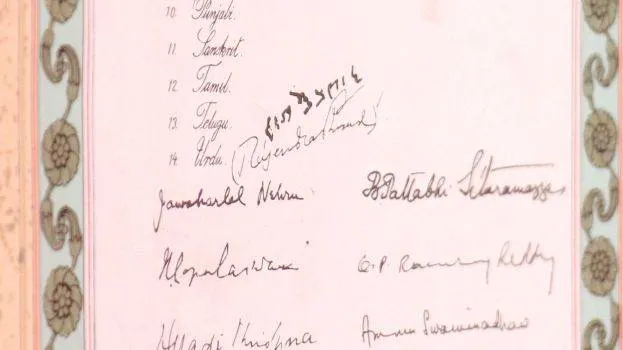 10. Punjabi.
11. Sanskrit.
12. Tamil.
13. Telugu.
14. Urdu.
Rajendra Prasad
Jawaharlal Nehru B. Pattabhi Sitaramayya
N. Gopalaswami O.P. Ramaswamy Reddy
Alladi Krishna Ammu Swaminadhan